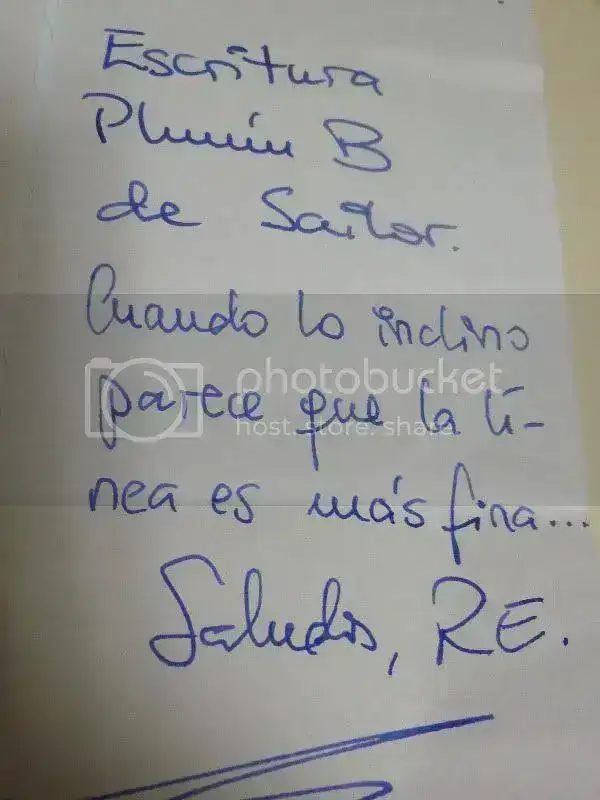 Escritura
Plumín B
de Sailor.
Cuando lo inclino
parece que la lí-
nea es más fina...
Saludos, RE.
photobucket
host. store. share.